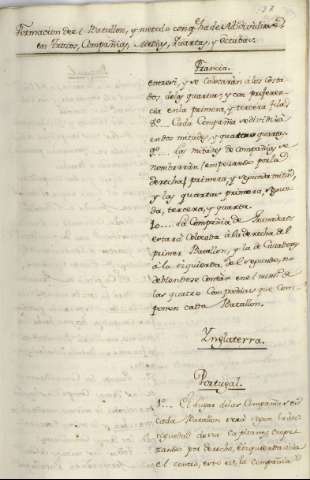 Formacion del Batallon, y metodo con q.e ha de subdividirse
en Trozos, Compañias, Mitades, Quartas, y Octabas.
Francia.
entresi, y se colocarán à los costa
dos de las quartas, y con preferen
cia en la primera, y tercera fila.
8º.... Cada Compañia se dividirá
en dos mitades, y quatro quartas.
9º.... Las mitades de compañias se
nombrarán (empezando por la
derecha) primera, y segunda mitad,
y las quartas primera, segun
da, tercera, y quarta.
10.... La Compañia de Granaderos
estará colocada à la derecha del
primer Batallon, y la de Cazadores
à la izquierda del segundo, no
debiendose contar en el num.º de
las quatro Compañias que com
ponen cada Batallon.
Ynglaterra.
Portugal.
1º... El lugar de las Compañias en
cada Batallon será segun la anti
guedad de sus Capitanes, empe
zando por derecha, izquierda
el centro, esto es, la Compañia